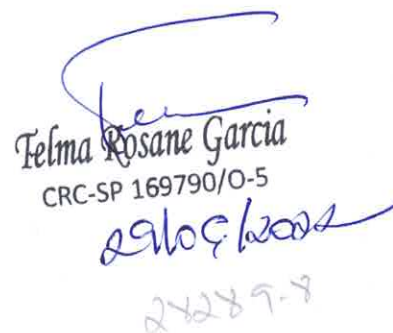 Telma Rosane Garcia
CRC-SP 169790/O-5
29/09/2022
28289-8